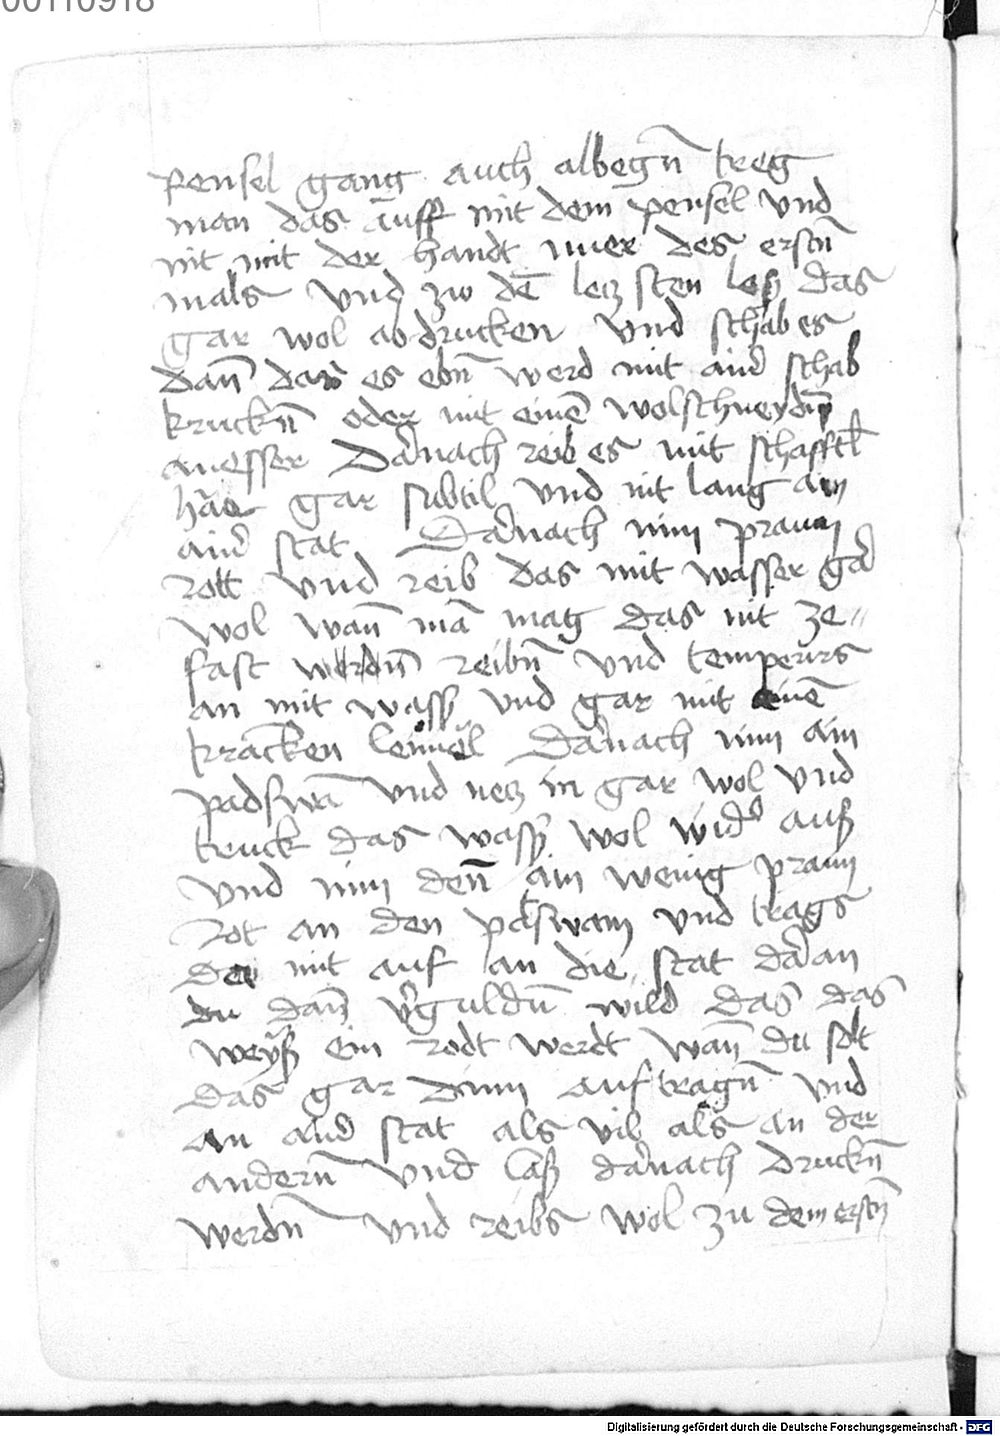 00110918
pensel gang auch albegn̄ treg
man das auff mit dem pensel vnd
nit mit der handt nuer des erstn̄
mals vnd zw dē lecz sten leß das
gar wol abdrucken vnd schab es
dan̄ das es ebn̄ werd mit aind̾ schab
kruckn̄ oder mit einē wolschneydn̄
messer Darnach reib es mit schafftl̄
har gar subtil vnd nit lang an
aind̾ stat Darnach nim praun
rott vnd reib das mit wasser gar
wol wan̄ mā mag das nit ze=
fast werdn̄ reibn̄ vnd temperirs
an mit wass̾ vnd gar mit einē
krancken leimēl Darnach nim ain
padswā vnd necz in gar wol vnd
truck das wass̾ wol wid̾ auß
vnd nim den̄ ain wenig praun
Rot an den padswam vnd trags
da mit auf an die stat daran
du dan̄ v̾guldn̄ wild das das
weyß ein rodt werdt wan̄ du solt
das gar dinn auftragn̄ vnd
an aind̾ stat als vil als an der
andern̄ vnd laß darnach druckn̄
werdn̄ vnd reibs wol zu dem erstn̄
Digitalisierung gefördert durch die Deutsche Forschungsgemeinschaft - DFG